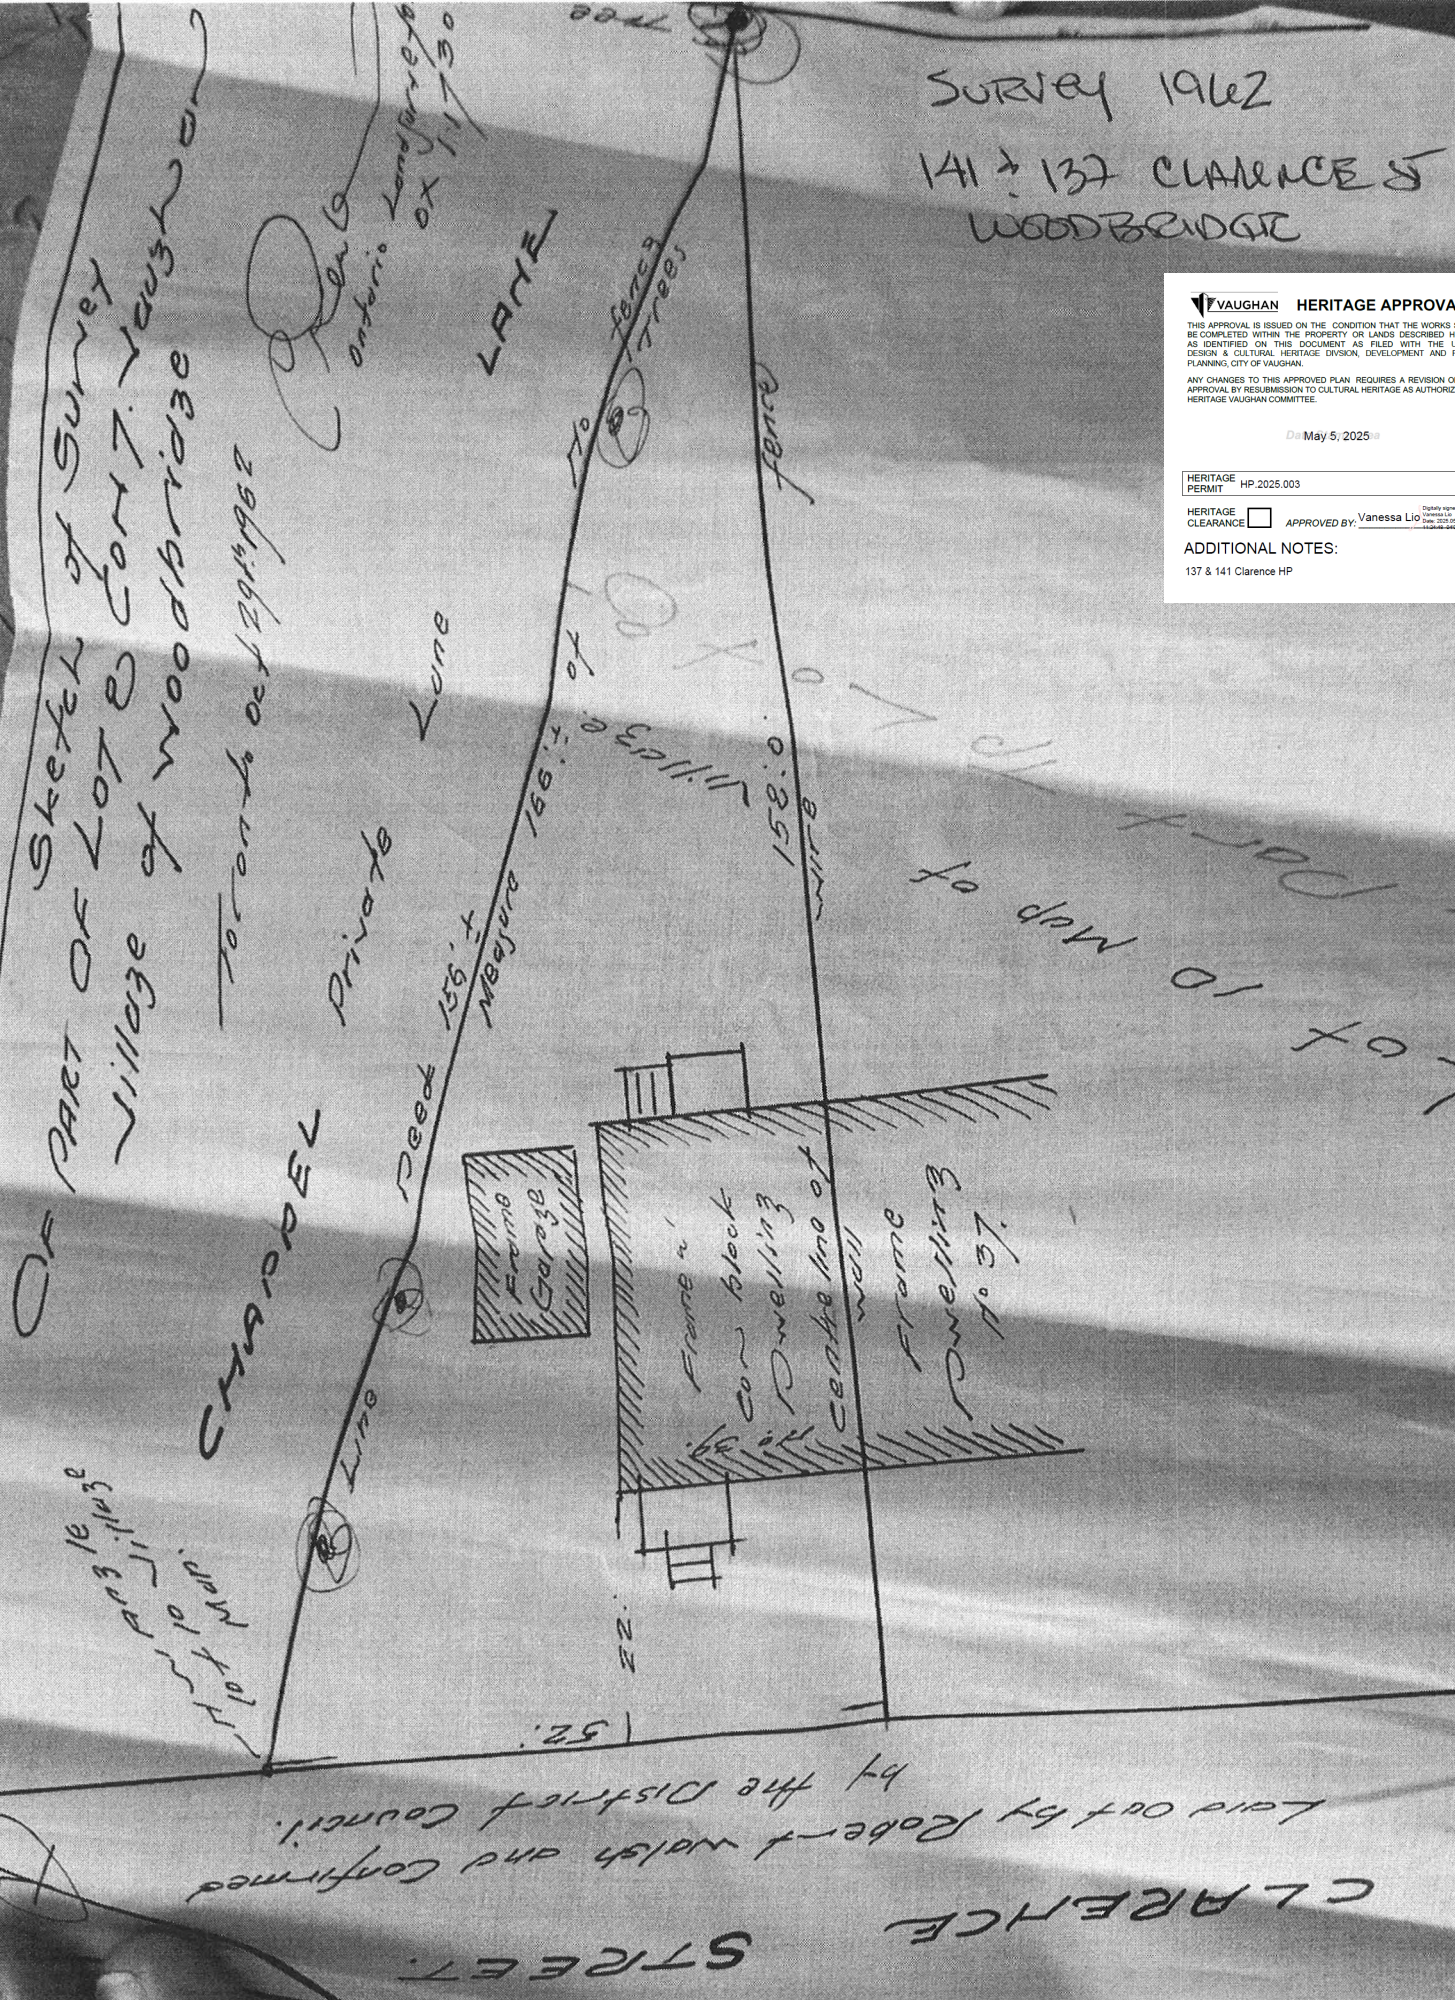 SURVEY 1962
141 & 137 CLARENCE ST
WOODBRIDGE
VAUGHAN HERITAGE APPROVA
THIS APPROVAL IS ISSUED ON THE CONDITION THAT THE WORKS
BE COMPLETED WITHIN THE PROPERTY OR LANDS DESCRIBED H
AS IDENTIFIED ON THIS DOCUMENT AS FILED WITH THE U
DESIGN & CULTURAL HERITAGE DIVSION, DEVELOPMENT AND
PLANNING, CITY OF VAUGHAN.
ANY CHANGES TO THIS APPROVED PLAN REQUIRES A REVISION O
APPROVAL BY RESUBMISSION TO CULTURAL HERITAGE AS AUTHORIZ
HERITAGE VAUGHAN COMMITTEE.
May 5, 2025
HERITAGE
PERMIT HP.2025.003
HERITAGE
CLEARANCE
APPROVED BY: Vanessa Lio
Digitally signe
Vanessa Lio
ADDITIONAL NOTES:
137 & 141 Clarence HP
Sketch of Survey
OF PART OF LOT 8 Con 7. Vaughan
Village of Woodbridge
Toronto Oct 29th 1962
Ontario Land Surveyor
OX 11730
CHAPPEL LANE
Private Lane
Line Deed 156'±
Measure 166'±
To
fence
Trees
Tree
fence
152'.0
wire
Lot 10 Map of
Village of
Part
Frame
Garage
Frame n'
Con Block
Dwelling
No 39.
Centreline of
wall
Frame
Dwelling
No 37.
22'
52'
N' Angle
Lot 10 Village
Map.
Laid Out by Robert Walsh and Confirmed
by the District Council.
CLARENCE STREET.